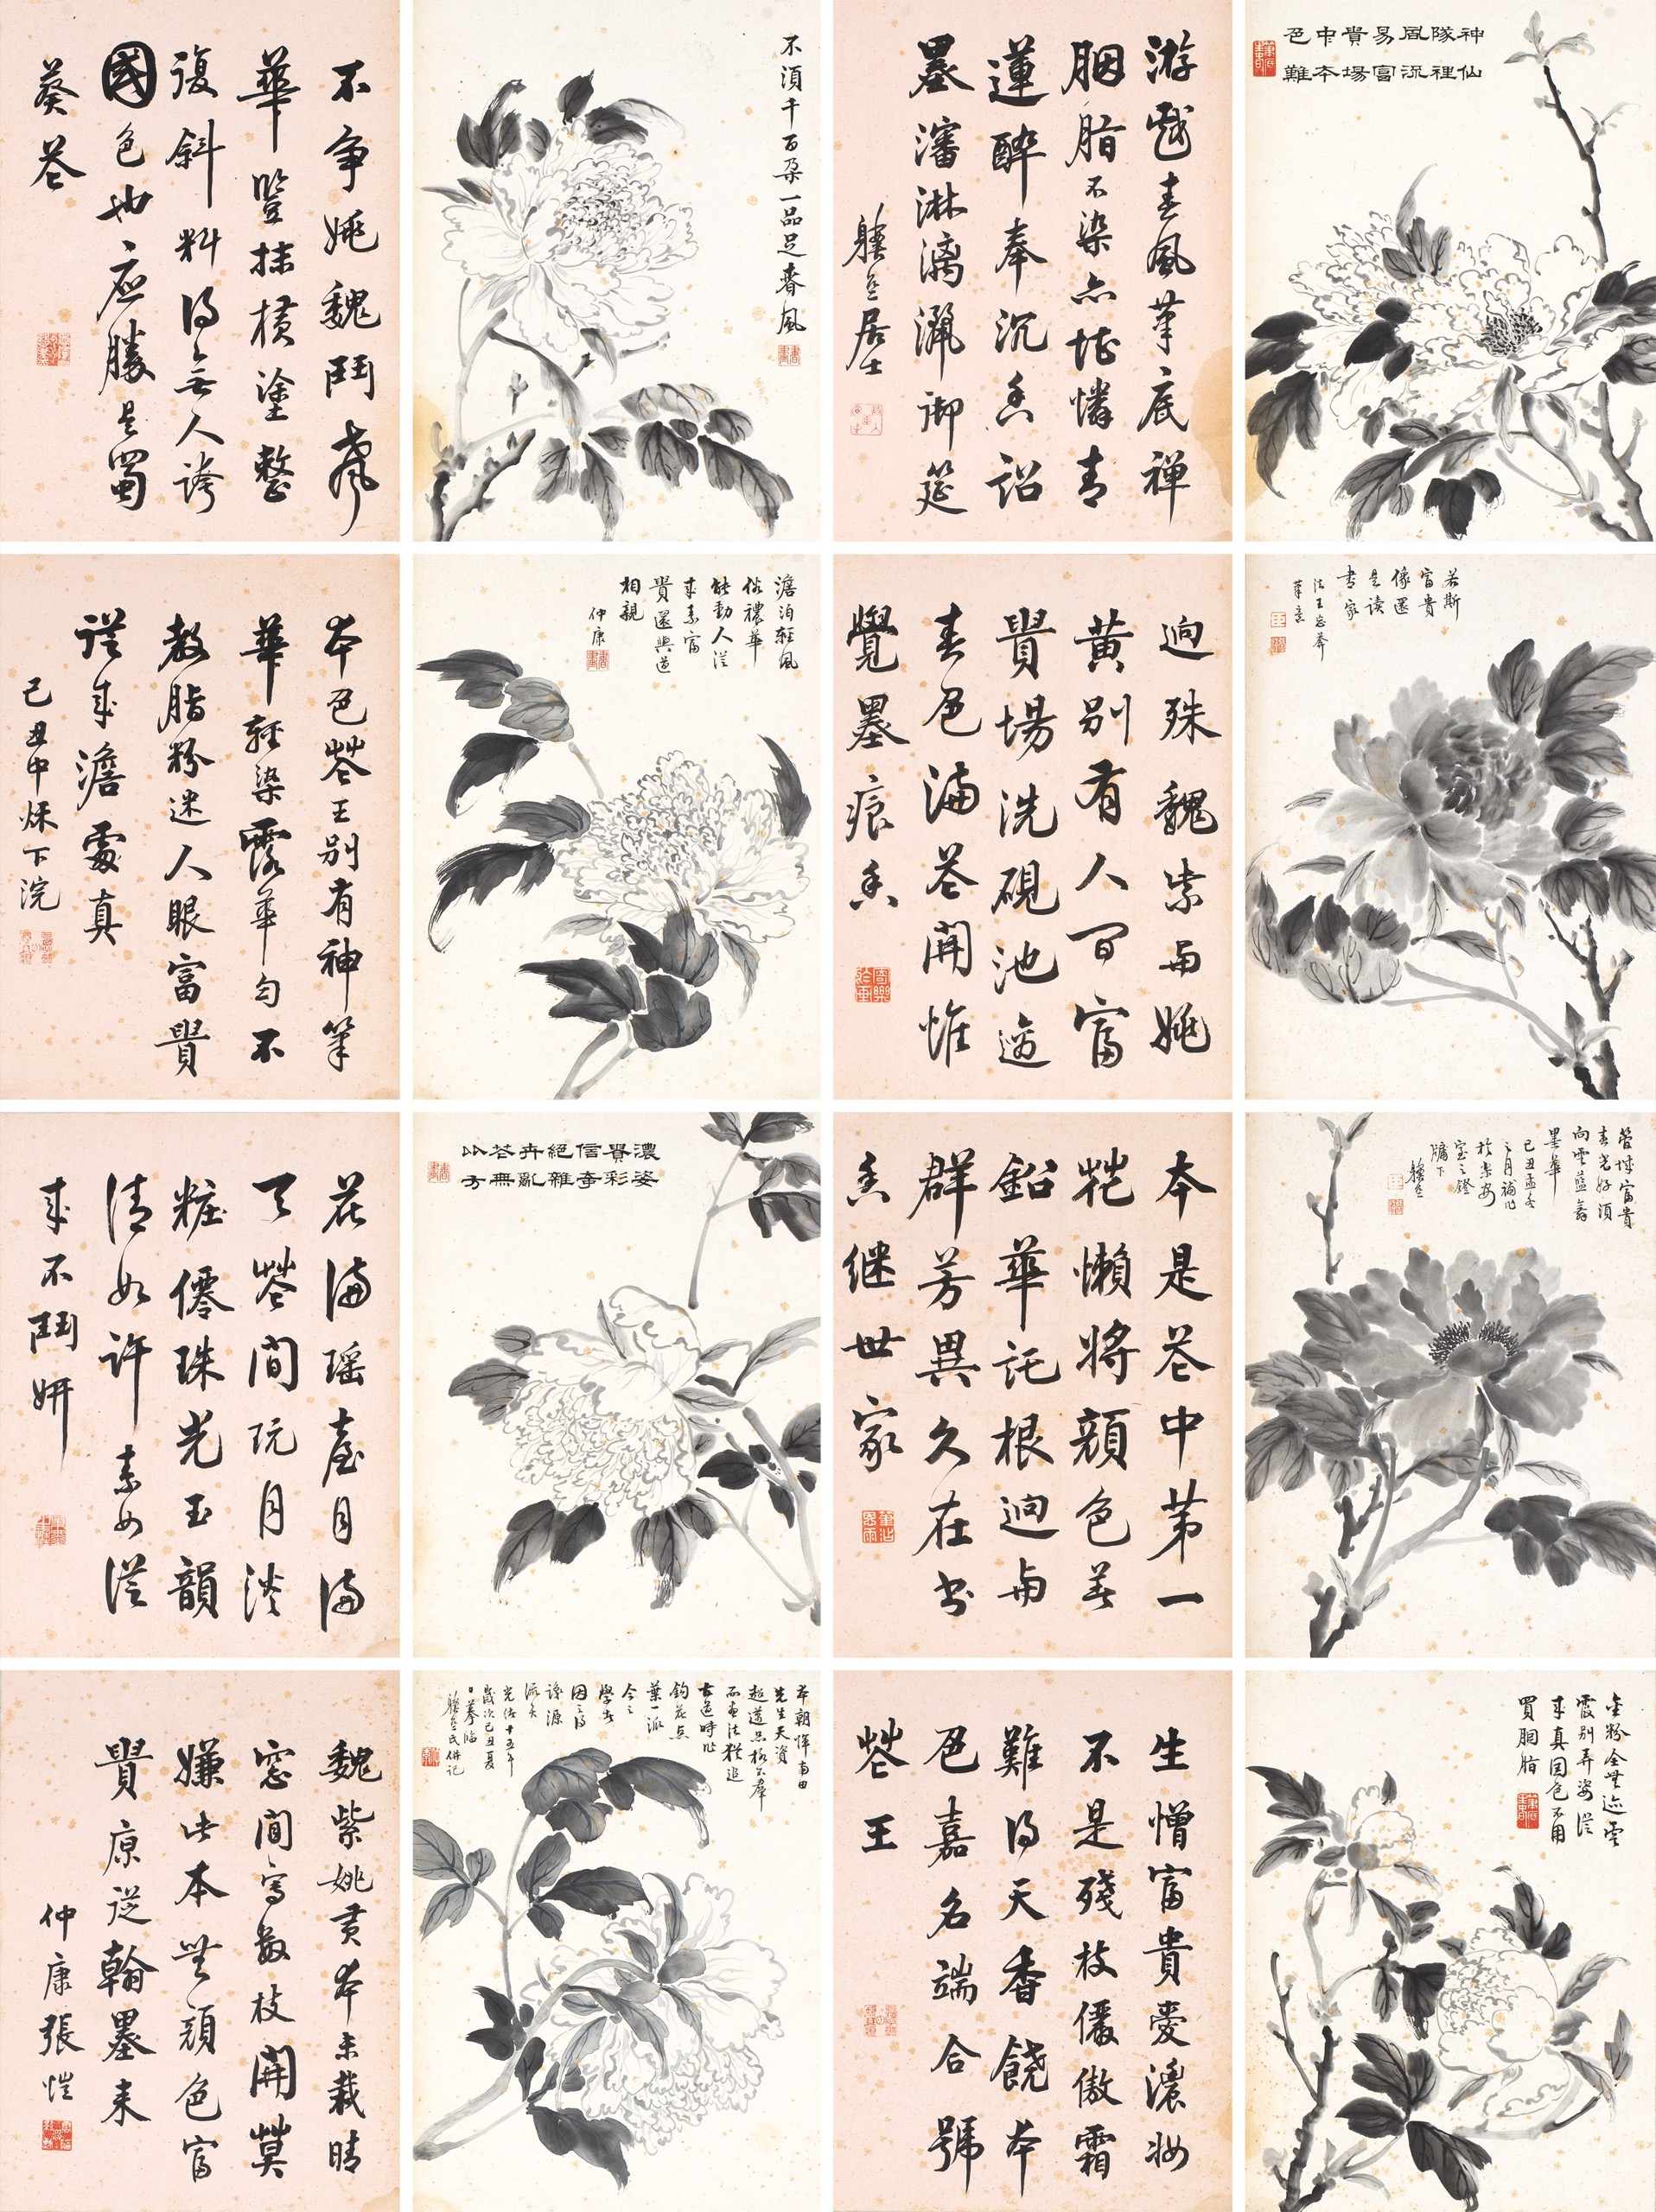 神仙
隊裡
風流
易富
貴場
中本
色難
游戲春風筆底禅
胭脂不染亦堪憐青
蓮醉奉沉香詔
墨瀋淋漓灑御筵
臞盦居士
不須千百朵一品足春風
不争姚魏鬥
華豎抹橫塗整
復斜料得無人誇
國色也應勝是蜀
葵花
若斯
富貴
像還
是讀
書家
法王忘菴
筆意
迥殊魏紫與姚
黄别有人间富
貴場洗硯池邊
春色滿花開惟
覺墨痕香
澹泊輕風
俗穠華
能動人從
來素富
貴還與道
相親
仲康
本色花王别有神筆
華輕染露華匀不
教脂粉迷人眼富貴
從来澹處真
己丑中秌下浣
管城富貴
春光好須
向雲藍寫
墨華
己丑孟冬
之月補作
室之鐙
牖下
臞盦
本是花中第一
花懶將顔色養
鉛華託根迥與
群芳異久在書
香继世家
濃姿
貴彩
信奇
絕雜
卉亂
花無
以方
花滿瑶臺月滿
天花間玩月淡
粧僊珠光玉韻
清如許素女從
来不鬥妍
金粉全無迹雲
霞别弄姿從
来真国色不用
買胭脂
生憎富貴愛濃妝
不是殘枝儘傲霜
難得天香饒本
色嘉名端合號
花王
本朝惲南田
先生天資
超邁品格不羣
而畫法猶追
古時作
鉤花点
葉一派
今之
學者
因之得
源
派矣
光緒十五年
歲次己丑夏
日摹臨
臞盦氏併記
魏紫姚黄本未栽晴
窓間寫數枝開莫
嫌此本無顔色富
貴原從翰墨来
仲康張愷